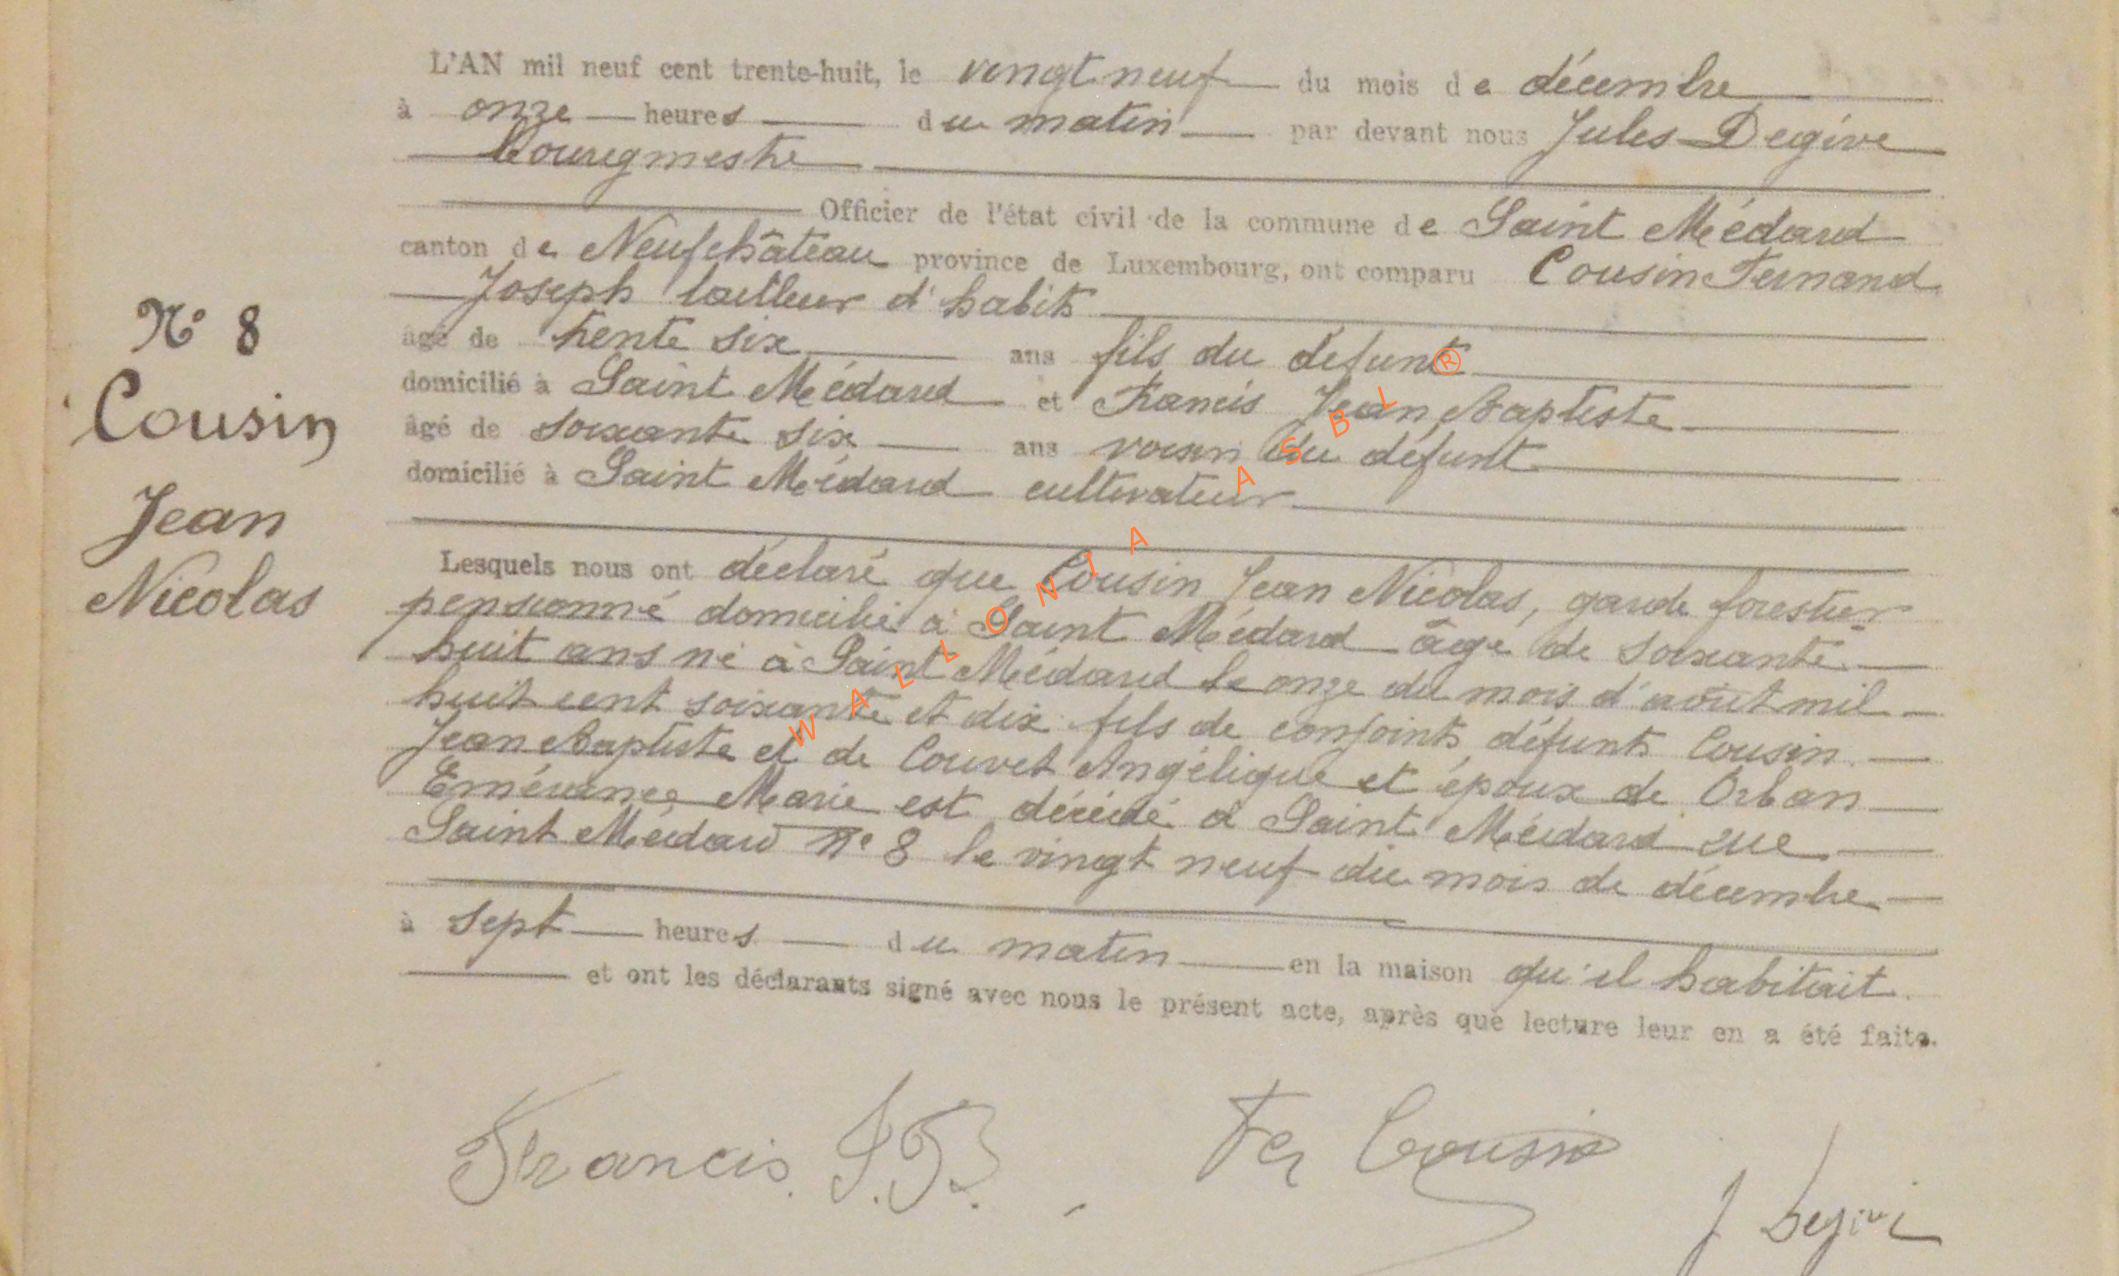 L'AN mil neuf cent trente-huit, le vingt neuf du mois de décembre
à onze heures du matin par devant nous Jules Degive
Bourgmestre
Officier de l'état civil de la commune de Saint Médard
canton de Neufchâteau province de Luxembourg, ont comparu Cousin Fernand
Joseph tailleur d'habits
âgé de trente six ans fils du défunt
domicilié à Saint Médard et Francis Jean Baptiste
âgé de soixante six ans voisin du défunt
domicilié à Saint Médard cultivateur
N° 8
Cousin
Jean
Nicolas
Lesquels nous ont déclaré que Cousin Jean Nicolas, garde forestier
pensionné domicilié à Saint Médard âgé de soixante
huit ans né à Saint Médard le onze du mois d'août mil
huit cent soixante et dix fils de conjoints défunts Cousin
Jean Baptiste et de Couvet Angélique et époux de Orban
Emérance Marie est décédé à Saint Médard rue
Saint Médard n° 8 le vingt neuf du mois de décembre
à sept heures du matin en la maison qu'il habitait.
et ont les déclarants signé avec nous le présent acte, après que lecture leur en a été faite.
Francis. J.B.
Fer Cousin
J Degive
WALLONIA ASBL ®